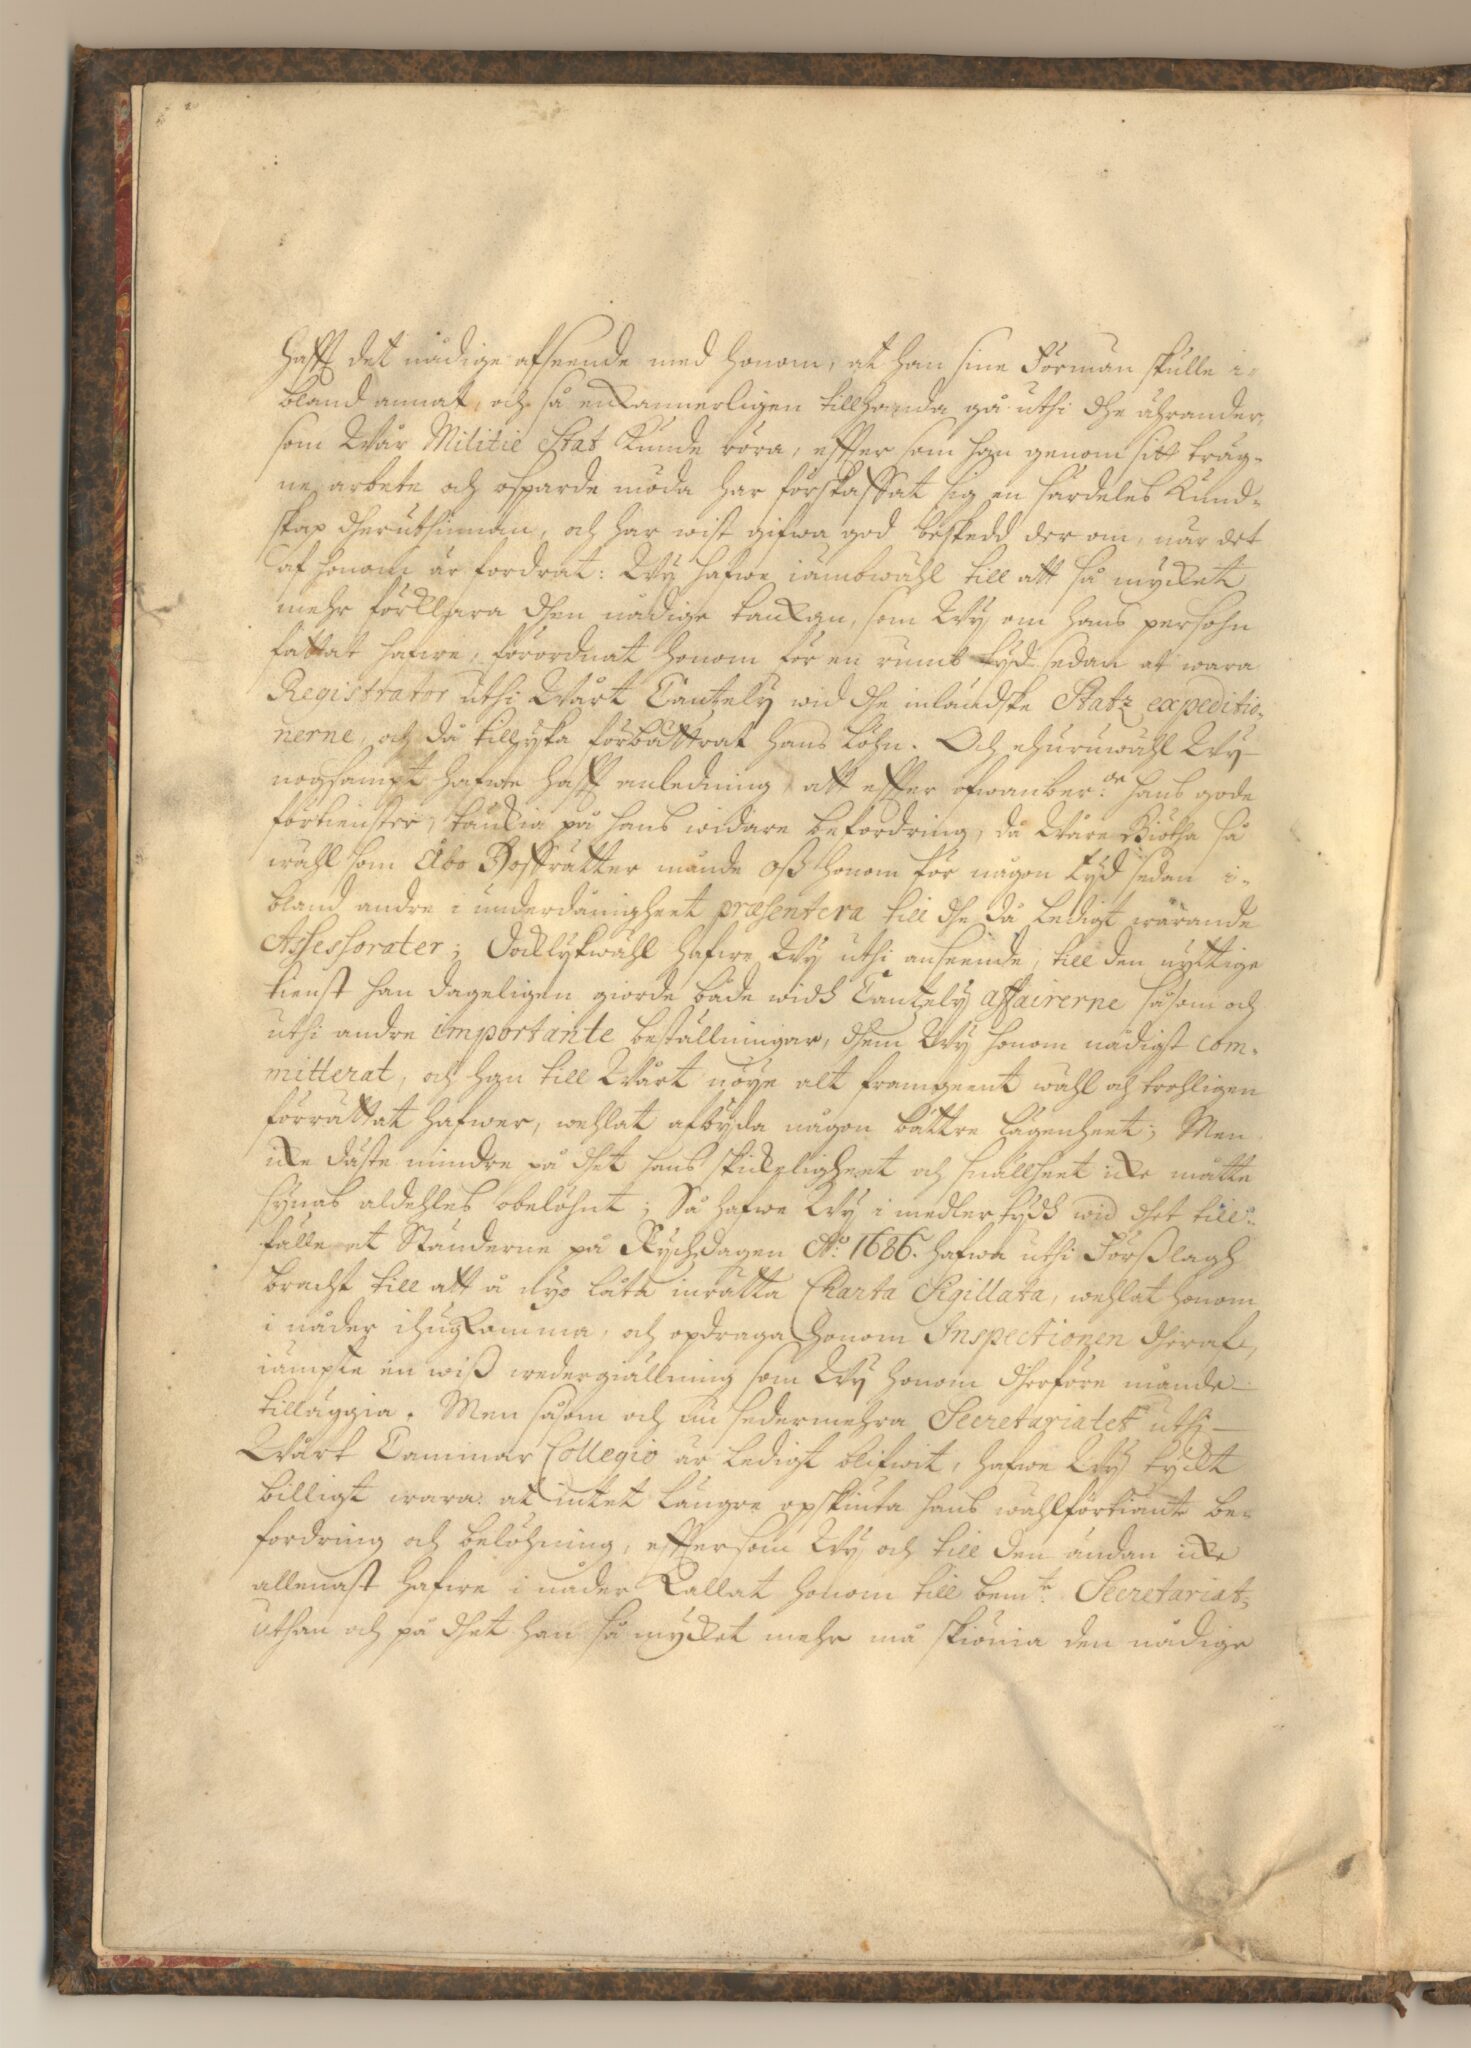 hafft det nådige afseende med honom, at han sine Förmän skulle i-
bland annat, och så enkannerligen tillhanda gå uthi the ährander,
som Wår Militie Stat kunde röra, effter som han genom sitt träg-
ne arbete och osparde möda har förskaffat sig en särdeles kund-
skap theruthinnan, och har wist gifwa god beskedd der om, när det
af honom är fordrat: Wy hafwe iämbwähl till att så mycket
mehr förklara then nådige tanckan, som Wy om hans persohn
fattat hafwe, förordnat honom för en rumb tyd sedan at wara
Registrator uthi Wårt Cantzely wid the inländske Statz expeditio-
nerne, och då tillyka förbättrat hans löhn. Och ehuruwähl Wy
nogsampt hafwe hafft anledning att effter ofwanber:de hans gode
förtienster, tänckia på hans widare befordring, då Wåre Giötha så
wähl som Åbo Hoffrätter månde Oß honom för någon tyd sedan i-
bland andre i underdånigheet præsentera till the då ledigt warande
Assessorater; Docklykwähl hafwe Wy uthi anseende, till den nyttige
tienst han dageligen giorde både widh Cantzely affairerne såsom och
uthi andre importante beställningar, them Wy honom nådigst com-
mitterat, och han till Wårt nöye alt framgeent wähl och trohligen
förrättat hafwer, wehlat afbyda någon bättre lägenheet; Men
icke däste mindre på thet hans skickeligheet och snällheet icke måtte
synas aldehles obelöhnt; Så hafwe Wy i medler tydh wid thet till-
fälle at Ständerne på Rychzdagen Ao: 1686. hafwa uthi Förßlagh
bracht till att å nyo låta inrätta Charta Sigillata, wehlat honom
i nåder ihugkomma, och opdraga honom Inspectionen theraf,
iämpte en wiß wedergiällning som Wy honom therföre månde
tilläggia. Men såsom och nu sedermehra Secretariatet uthi
Wårt Cammar Collegio är ledigt blifwit, hafwe Wy tyckt
billigt wara at intet längre opskiuta hans wählförtiänte be-
fordring och belöhning, effter som Wy och till den ändan icke
allenast hafwe i nåder kallat honom till bem:te Secretariat,
Uthan och på thet han så mycket mehr må skiönia den nådige